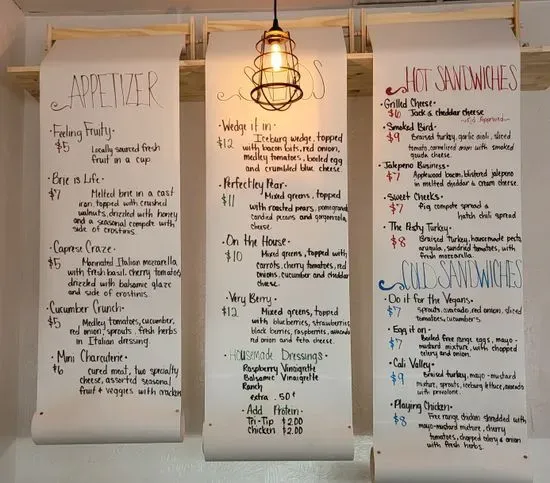 APPETIZER
Feeling Fruity.
$5 Locally sourced fresh
fruit in a cup
Brie is Life.
$7 Melted brie in a cast
iron, topped with crushed
walnuts, drizzled with honey
and a seasonal compote with
side of crostinis.
Caprese Craze.
$5 Marinated Italian mozzarella
with fresh basil, cherry tomatoes
drizzled with balsamic glaze
and side of crostinis.
Cucumber Crunch.
$5 Medley tomatoes, cucumber,
red onion, sprouts, fresh herbs
in Italian dressing.
Mini Charcuterie.
$6 cured meat, two specialty
cheese, assorted seasonal
fruit & veggies with crackers
DS
Wedge it in.
$12 Iceburg wedge, topped
with bacon bits, red onion,
medley tomatoes, boiled egg
and crumbled blue cheese.
Perfectley Pear.
$11 Mixed greens, topped
with roasted pears, pomegranate
candied pecans and gorgonzola
cheese.
On the House.
$10 Mixed greens, topped with
carrots, cherry tomatoes, red
onions, cucumber and cheddar
cheese.
Very Berry.
$12 Mixed greens, topped
with blueberries, strawberries
black berries, raspberries, avocado
red onion and feta cheese.
Housemade Dressings.
Raspberry Vinaigrette
Balsamic Vinaigrette
Ranch
extra .50¢
Add Protein.
Tri-Tip $2.00
Chicken $2.00
HOT SANDWICHES
Grilled Cheese.
$6 Jack & cheddar cheese
-Kid Approved-
Smoked Bird.
$9 Braised turkey, garlic aioli, sliced
tomato, carmelized onion with smoked
gouda cheese.
Jalapeno Business.
$7 Applewood bacon, blistered jalapeno
in melted cheddar & cream cheese.
Sweet Cheeks.
$7 Fig compote spread &
hatch chili spread
The Pesty Turkey.
$8 Braised Turkey, housemade pesto
arugula, sundried tomatoes, with
fresh mozzarella.
COLD SANDWICHES
Do it for the Vegans.
$7 Sprouts, avocado, red onion, sliced
tomatoes, cucumbers.
Egg it on.
$7 Boiled free range eggs, mayo-
mustard mixture, with chopped
celery and onion.
Cali Valley.
$9 Braised turkey, mayo-mustard
mixture, sprouts, iceburg lettuce, avocado
with provolone.
Playing Chicken.
$8 Free range chicken shredded with
mayo-mustard mixture, cherry
tomatoes, chopped celery & onion
with fresh herbs.